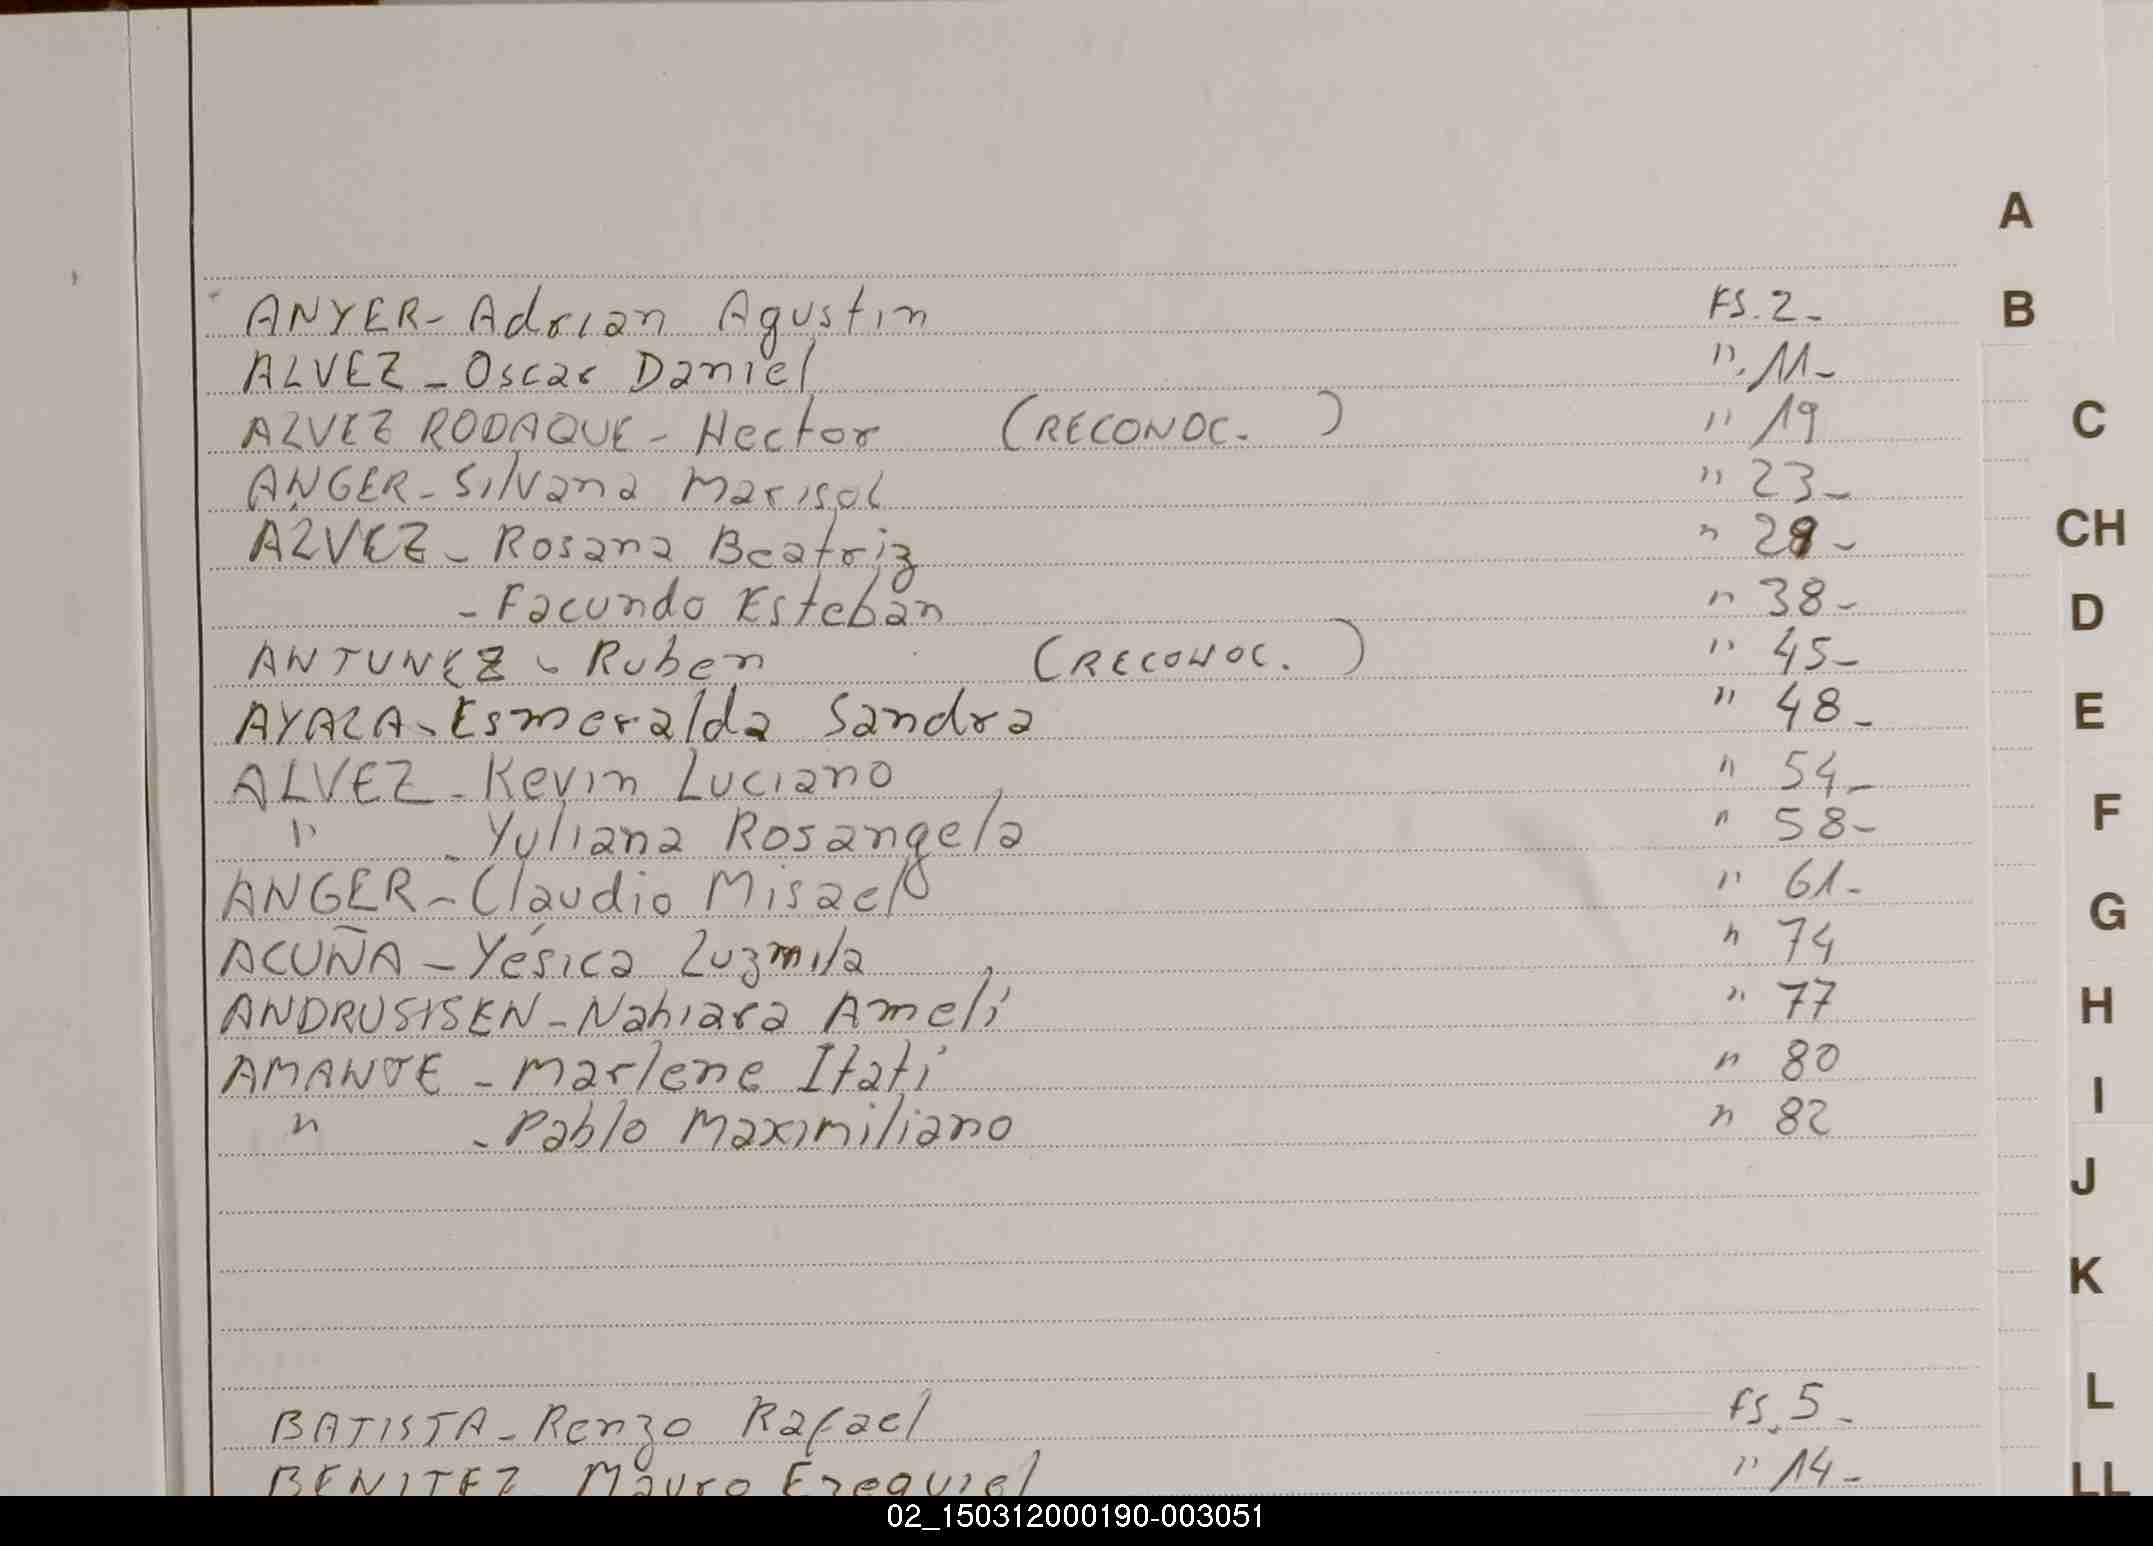 ANYER - Adrian Agustin FS. 2 -
ALVEZ - Oscar Daniel ". 11 -
ALVEZ RODAQUE - Hector (RECONOC. ) " 19
ANGER - Silvana Marisol " 23 -
ALVEZ - Rosana Beatriz " 29 -
- Facundo Esteban " 38 -
ANTUNEZ - Ruben (RECONOC. ) " 45 -
AYALA - Esmeralda Sandra " 48 -
ALVEZ - Kevin Luciano " 54 -
" - Yuliana Rosángela " 58 -
ANGER - Claudio Misael " 61 -
ACUÑA - Yésica Luzmila " 74
ANDRUSISEN - Nahiara Amelí " 77
AMANTE - Marlene Itatí " 80
" - Pablo Maximiliano " 82
BATISTA - Renzo Rafael FS. 5 -
BENITEZ Mauro Ezequiel " 14 -
A
B
C
CH
D
E
F
G
H
I
J
K
L
LL
02_150312000190-003051